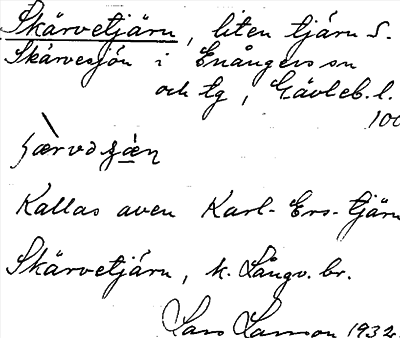 Skärvetjärn, liten tjärn S.
Skärvesjön i Enångers sn
och tg, Gävleb. l.
100
Kallas även Karl-Ers-tjärn
Skärvetjärn, k. Långv. br.
Lars Larsson 1932.